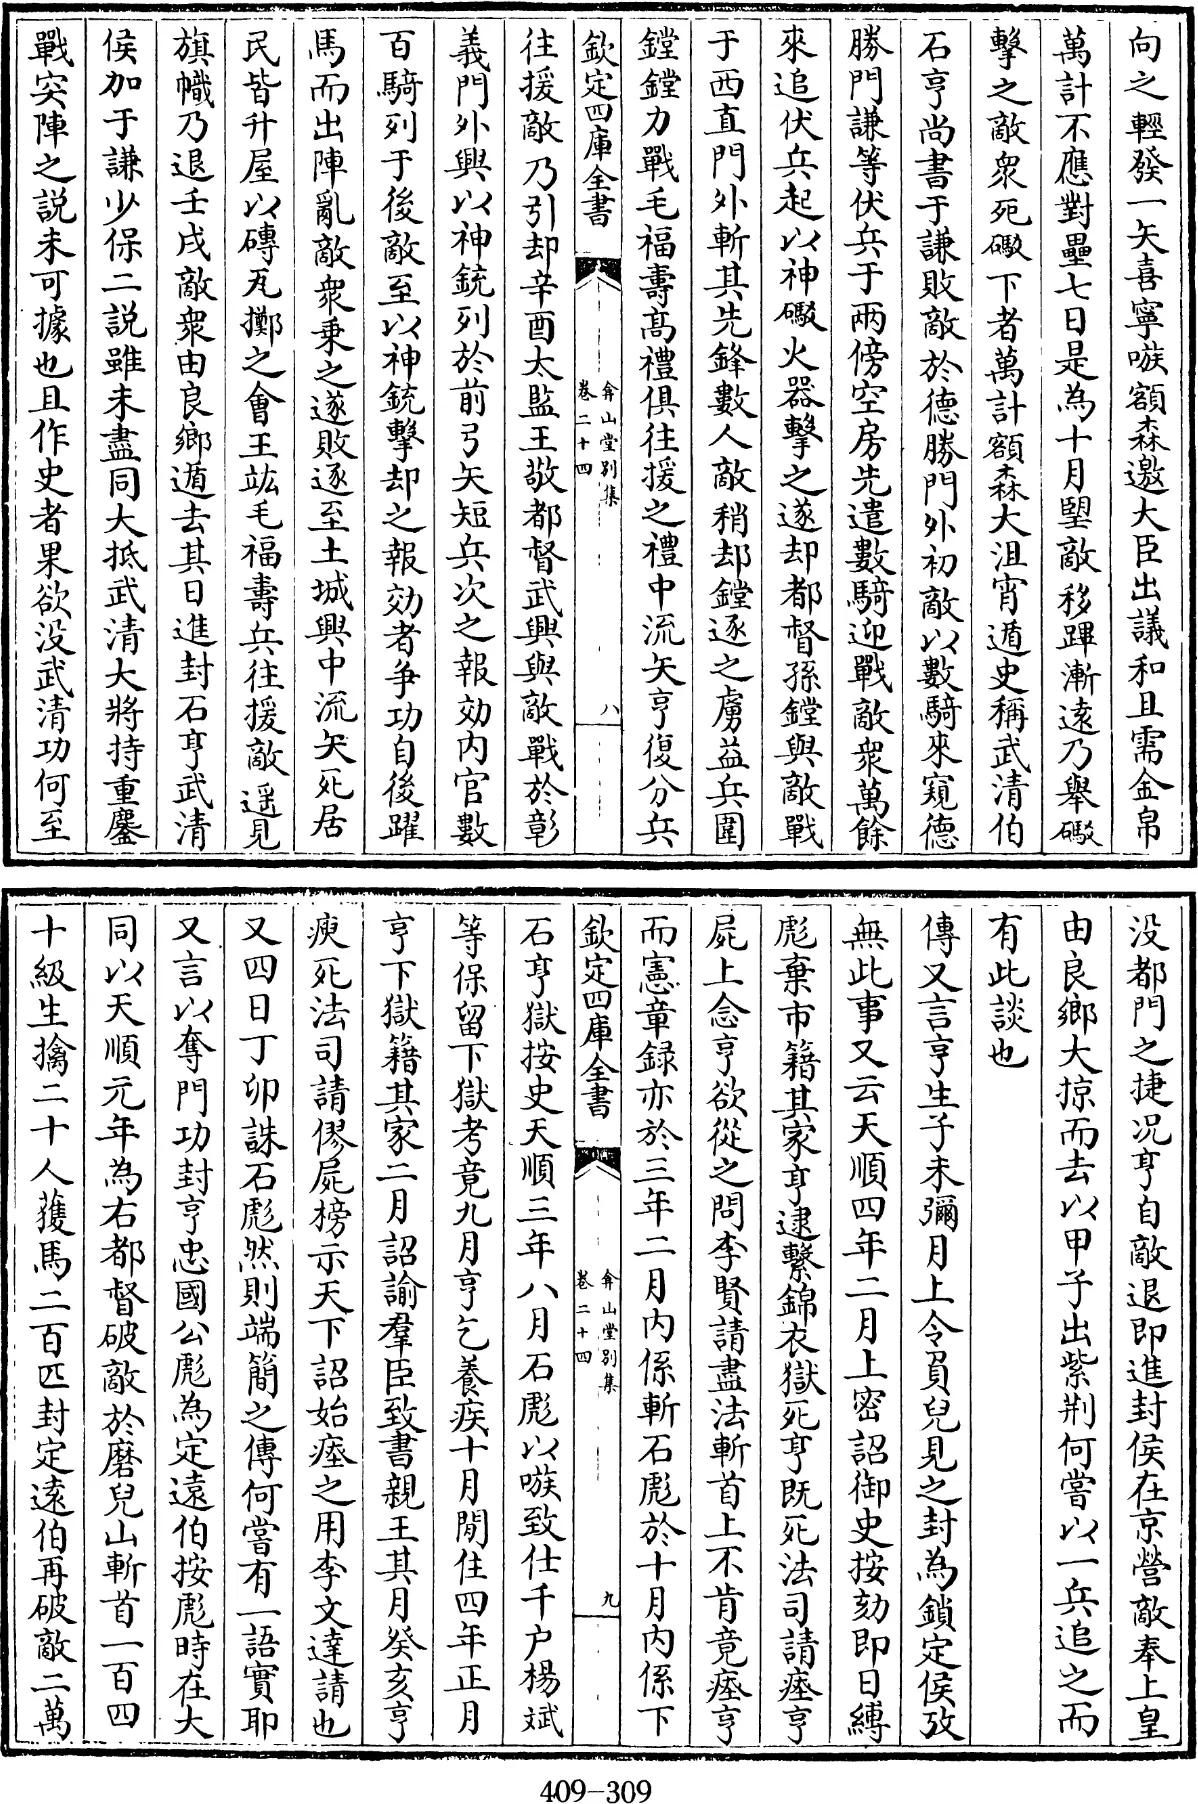 向之輕發一矢喜寧嗾額森邀大臣出議和且需金帛
萬計不應對壘七日是為十月朢敵移蹕漸遠乃舉礮
擊之敵衆死礮下者萬計額森大沮宵遁史稱武清伯
石亨尚書于謙敗敵於德勝門外初敵以數騎來窺德
勝門謙等伏兵于兩傍空房先遣數騎迎戰敵衆萬餘
來追伏兵起以神礮火器擊之遂却都督孫鏜與敵戰
于西直門外斬其先鋒數人敵稍却鏜逐之虜益兵圍
鏜鏜力戰毛福壽髙禮俱往援之禮中流矢亨復分兵
欽定四庫全書
弇山堂别集
卷二十四
八
往援敵乃引却辛酉太監王敬都督武興與敵戰於彰
義門外興以神銃列於前弓矢短兵次之報効内官數
百騎列于後敵至以神銃擊却之報効者争功自後躍
馬而出陣亂敵衆乗之遂敗逐至土城興中流矢死居
民皆升屋以磚瓦擲之會王竑毛福壽兵往援敵遥見
旗幟乃退壬戌敵衆由良鄉遁去其日進封石亨武清
侯加于謙少保二説雖未盡同大抵武清大將持重鏖
戰突陣之説未可據也且作史者果欲没武清功何至
没都門之捷况亨自敵退即進封侯在京營敵奉上皇
由良鄉大掠而去以甲子出紫荆何嘗以一兵追之而
有此談也
傳又言亨生子未彌月上令負兒見之封為鎖定侯攷
無此事又云天順四年二月上密詔御史按劾即日縛
彪棄市籍其家亨逮繫錦衣獄死亨既死法司請瘞亨
屍上念亨欲從之問李賢請盡法斬首上不肯竟瘞亨
而憲章録亦於三年二月内係斬石彪於十月内係下
欽定四庫全書
弇山堂别集
卷二十四
九
石亨獄按史天順三年八月石彪以嗾致仕千户楊斌
等保留下獄考竟九月亨乞養疾十月閒住四年正月
亨下獄籍其家二月詔諭羣臣致書親王其月癸亥亨
瘐死法司請僇屍榜示天下詔始瘞之用李文達請也
又四日丁卯誅石彪然則端簡之傳何嘗有一語實耶
又言以奪門功封亨忠國公彪為定遠伯按彪時在大
同以天順元年為右都督破敵於磨兒山斬首一百四
十級生擒二十人獲馬二百匹封定遠伯再破敵二萬
409-309